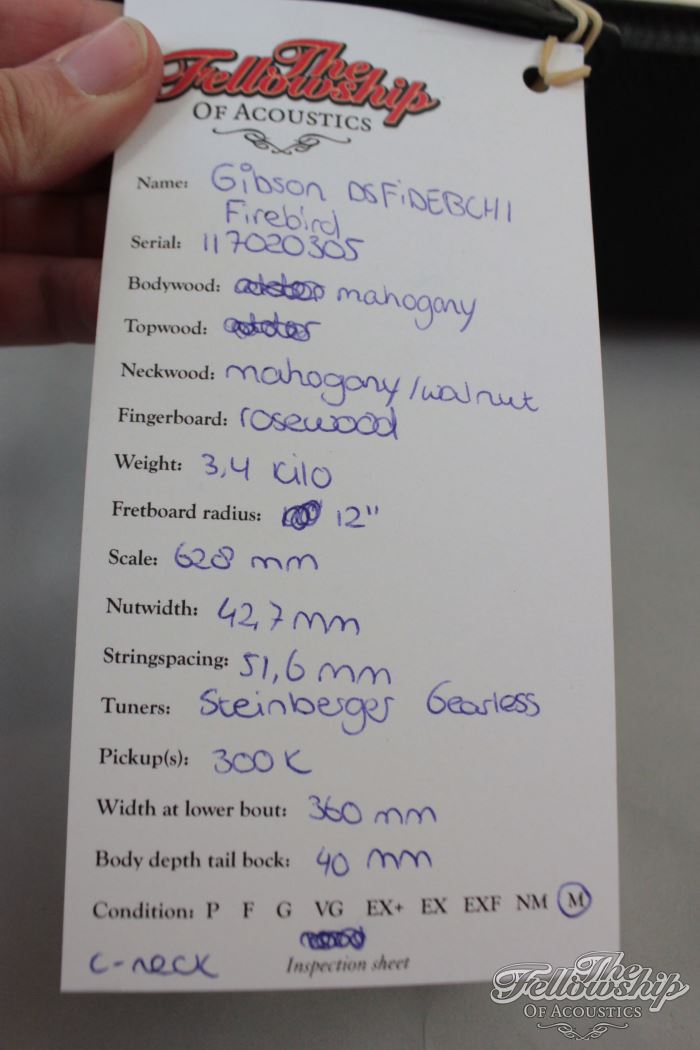 The
Fellowship
OF ACOUSTICS
Name: Gibson DSFiDEBCH1
Firebird
Serial: 117020305
Bodywood: mahogany
Topwood:
Neckwood: mahogany/walnut
Fingerboard: rosewood
Weight: 3,4 kilo
Fretboard radius: 12"
Scale: 628 mm
Nutwidth: 42,7 mm
Stringspacing: 51,6 mm
Tuners: Steinberger Gearless
Pickup(s): 300K
Width at lower bout: 360 mm
Body depth tail bock: 40 mm
Condition: P F G VG EX+ EX EXF NM M
c-neck Inspection sheet
The
Fellowship
OF ACOUSTICS